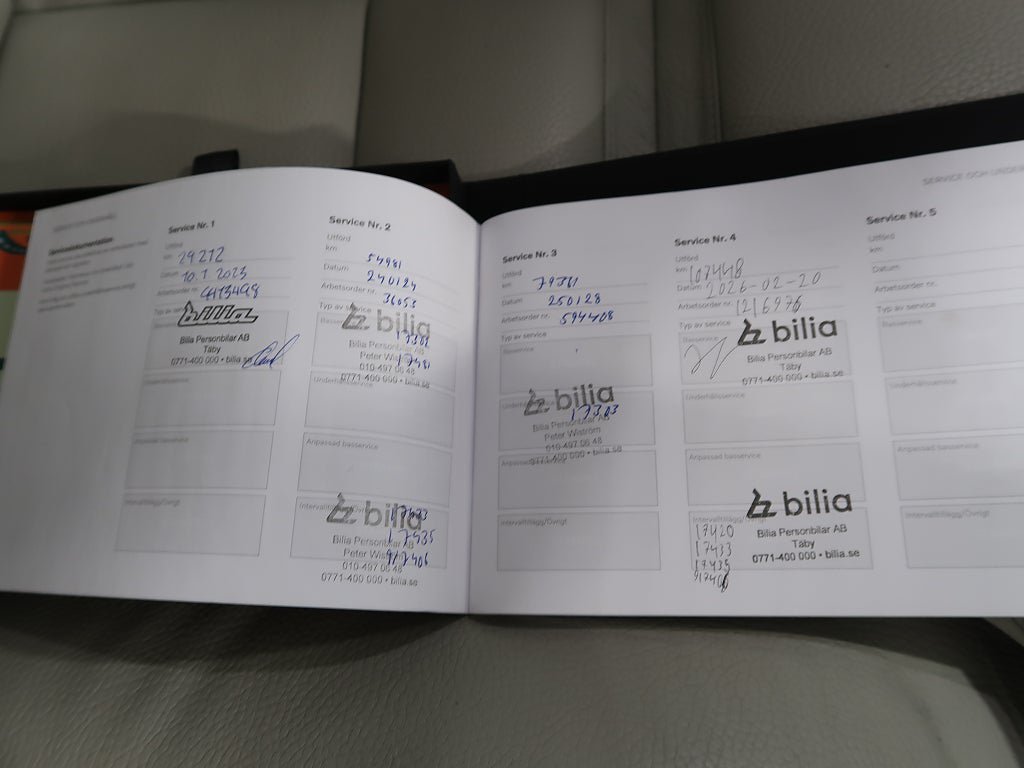 Servicedokumentation
Service Nr. 1
Utförd
km 29272
Datum 10.1 2023
Arbetsorder nr.
Typ av service
bilia
Bilia Personbilar AB
Täby
0771-400 000 • bilia.se
Underhållsservice
Anpassad basservice
Intervalltillägg/Övrigt
Service Nr. 2
Utförd
km 54981
Datum 240124
Arbetsorder nr. 36053
Typ av service
bilia
Bilia Personbilar AB
Peter Wiström
010-497 06 48
0771-400 000 • bilia.se
Anpassad basservice
bilia
17435
Bilia Personbilar AB
Peter Wiström
917406
010-497 06 48
0771-400 000 • bilia.se
Service Nr. 3
Utförd
km
Datum 250128
Arbetsorder nr. 594408
Typ av service
Basservice
bilia
17383
Bilia Personbilar AB
Peter Wiström
010-497 06 48
0771-400 000 • bilia.se
Intervalltillägg/Övrigt
Service Nr. 4
Utförd
km 107448
Datum 2026-02-20
Arbetsorder nr. 1216976
Typ av service
bilia
Bilia Personbilar AB
Täby
0771-400 000 • bilia.se
Underhållsservice
Anpassad basservice
bilia
Intervalltillägg/Övrigt
17420
17433
17435
917406
Bilia Personbilar AB
Täby
0771-400 000 • bilia.se
SERVICE OCH
Service Nr. 5
Utförd
km
Datum
Arbetsorder nr.
Typ av service
Basservice
Underhållsservice
Anpassad basservice
Intervalltillägg/Övrigt